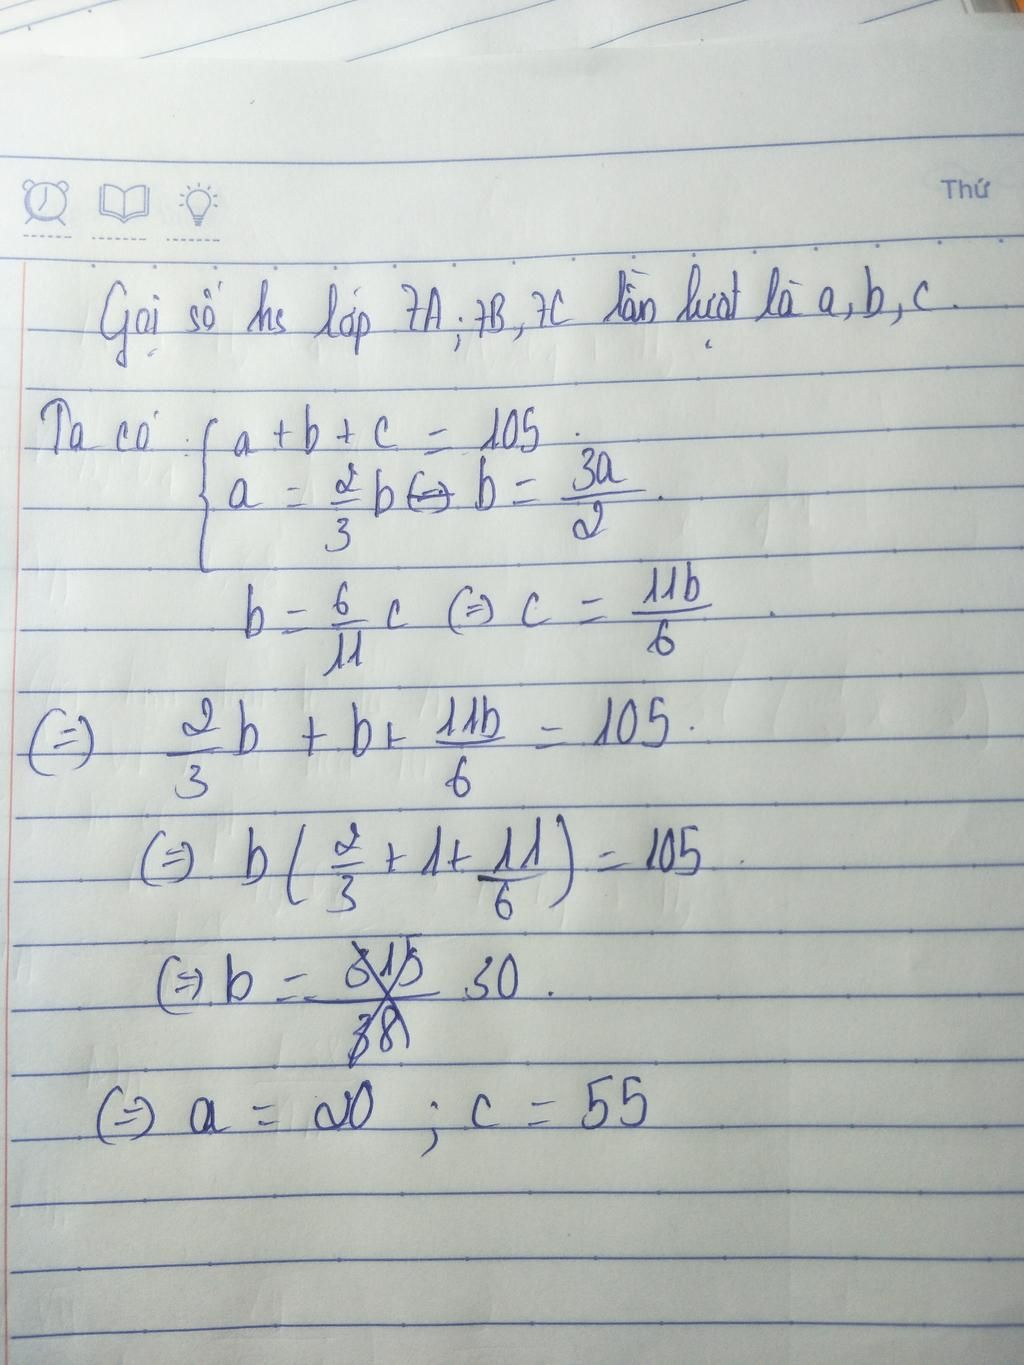 Thứ
Gọi số hs lớp 7A; 7B, 7C lần lượt là a, b, c.
Ta có: { a + b + c = 105.
a = 2/3 b (=) b = 3a/2.
b = 6/11 c (=) c = 11b/6.
(=) 2/3 b + b + 11b/6 = 105.
(=) b ( 2/3 + 1 + 11/6 ) = 105.
(=) b = 30.
(=) a = 20 ; c = 55